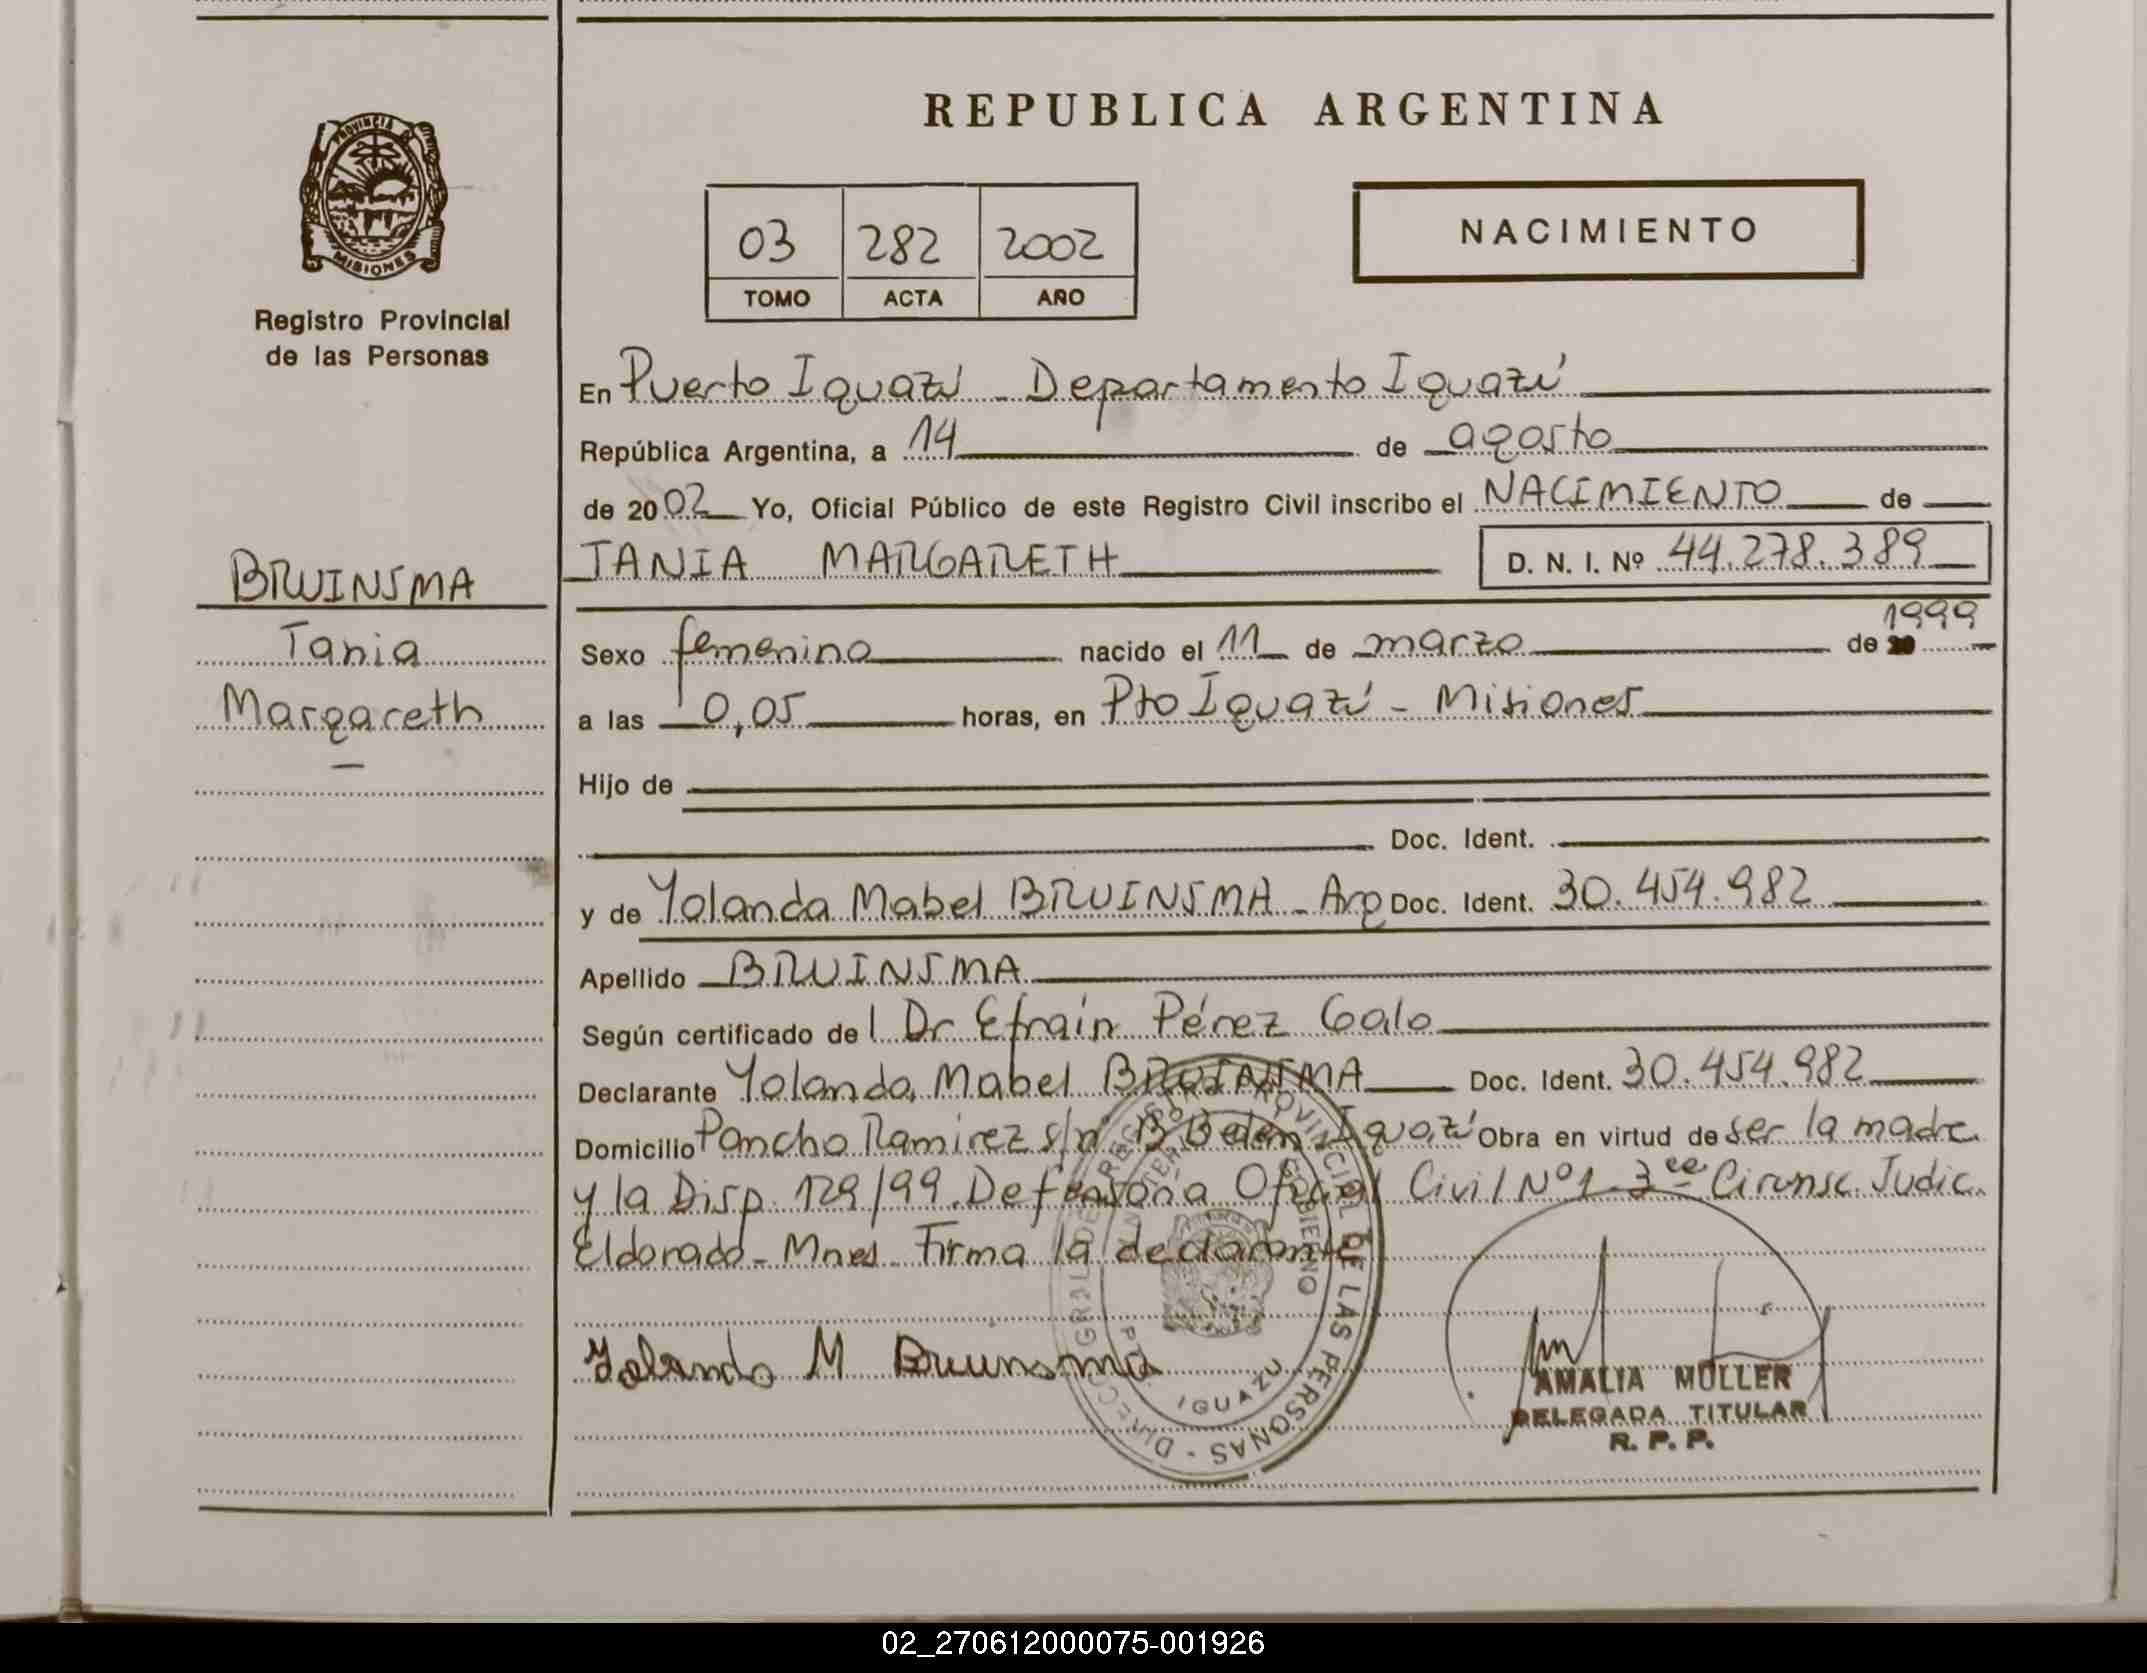 REPUBLICA ARGENTINA
PROVINCIA DE
MISIONES
Registro Provincial
de las Personas
03 282 2002
TOMO ACTA AÑO
NACIMIENTO
En Puerto Iguazú - Departamento Iguazú
República Argentina, a 14 de agosto
de 2002 Yo, Oficial Público de este Registro Civil inscribo el NACIMIENTO de
TANIA MARGARETH D. N. I. Nº 44.278.389
BRUINSMA
Tania
Margareth
Sexo femenino nacido el 11 de marzo de 1999
a las 0,05 horas, en Pto Iguazú - Misiones
Hijo de
Doc. Ident.
y de Yolanda Mabel BRUINSMA - Arg Doc. Ident. 30.454.982
Apellido BRUINSMA
Según certificado del Dr Efraín Pérez Galo
Declarante Yolanda Mabel BRUINSMA Doc. Ident. 30.454.982
Domicilio Pancho Ramirez s/nº Bº Belén Iguazú Obra en virtud de ser la madre
y la Disp. 129/99. Defensoría Oficial Civil Nº1 3ra Cirunsc. Judic.
Eldorado - Mnes. Firma la declarante
Yolanda M Bruinsma
DIRECC. GRAL. DE REGISTRO PROVINCIAL DE LAS PERSONAS
GOBIERNO
IGUAZU
AMALIA MULLER
DELEGADA TITULAR
R. P. P.
02_270612000075-001926